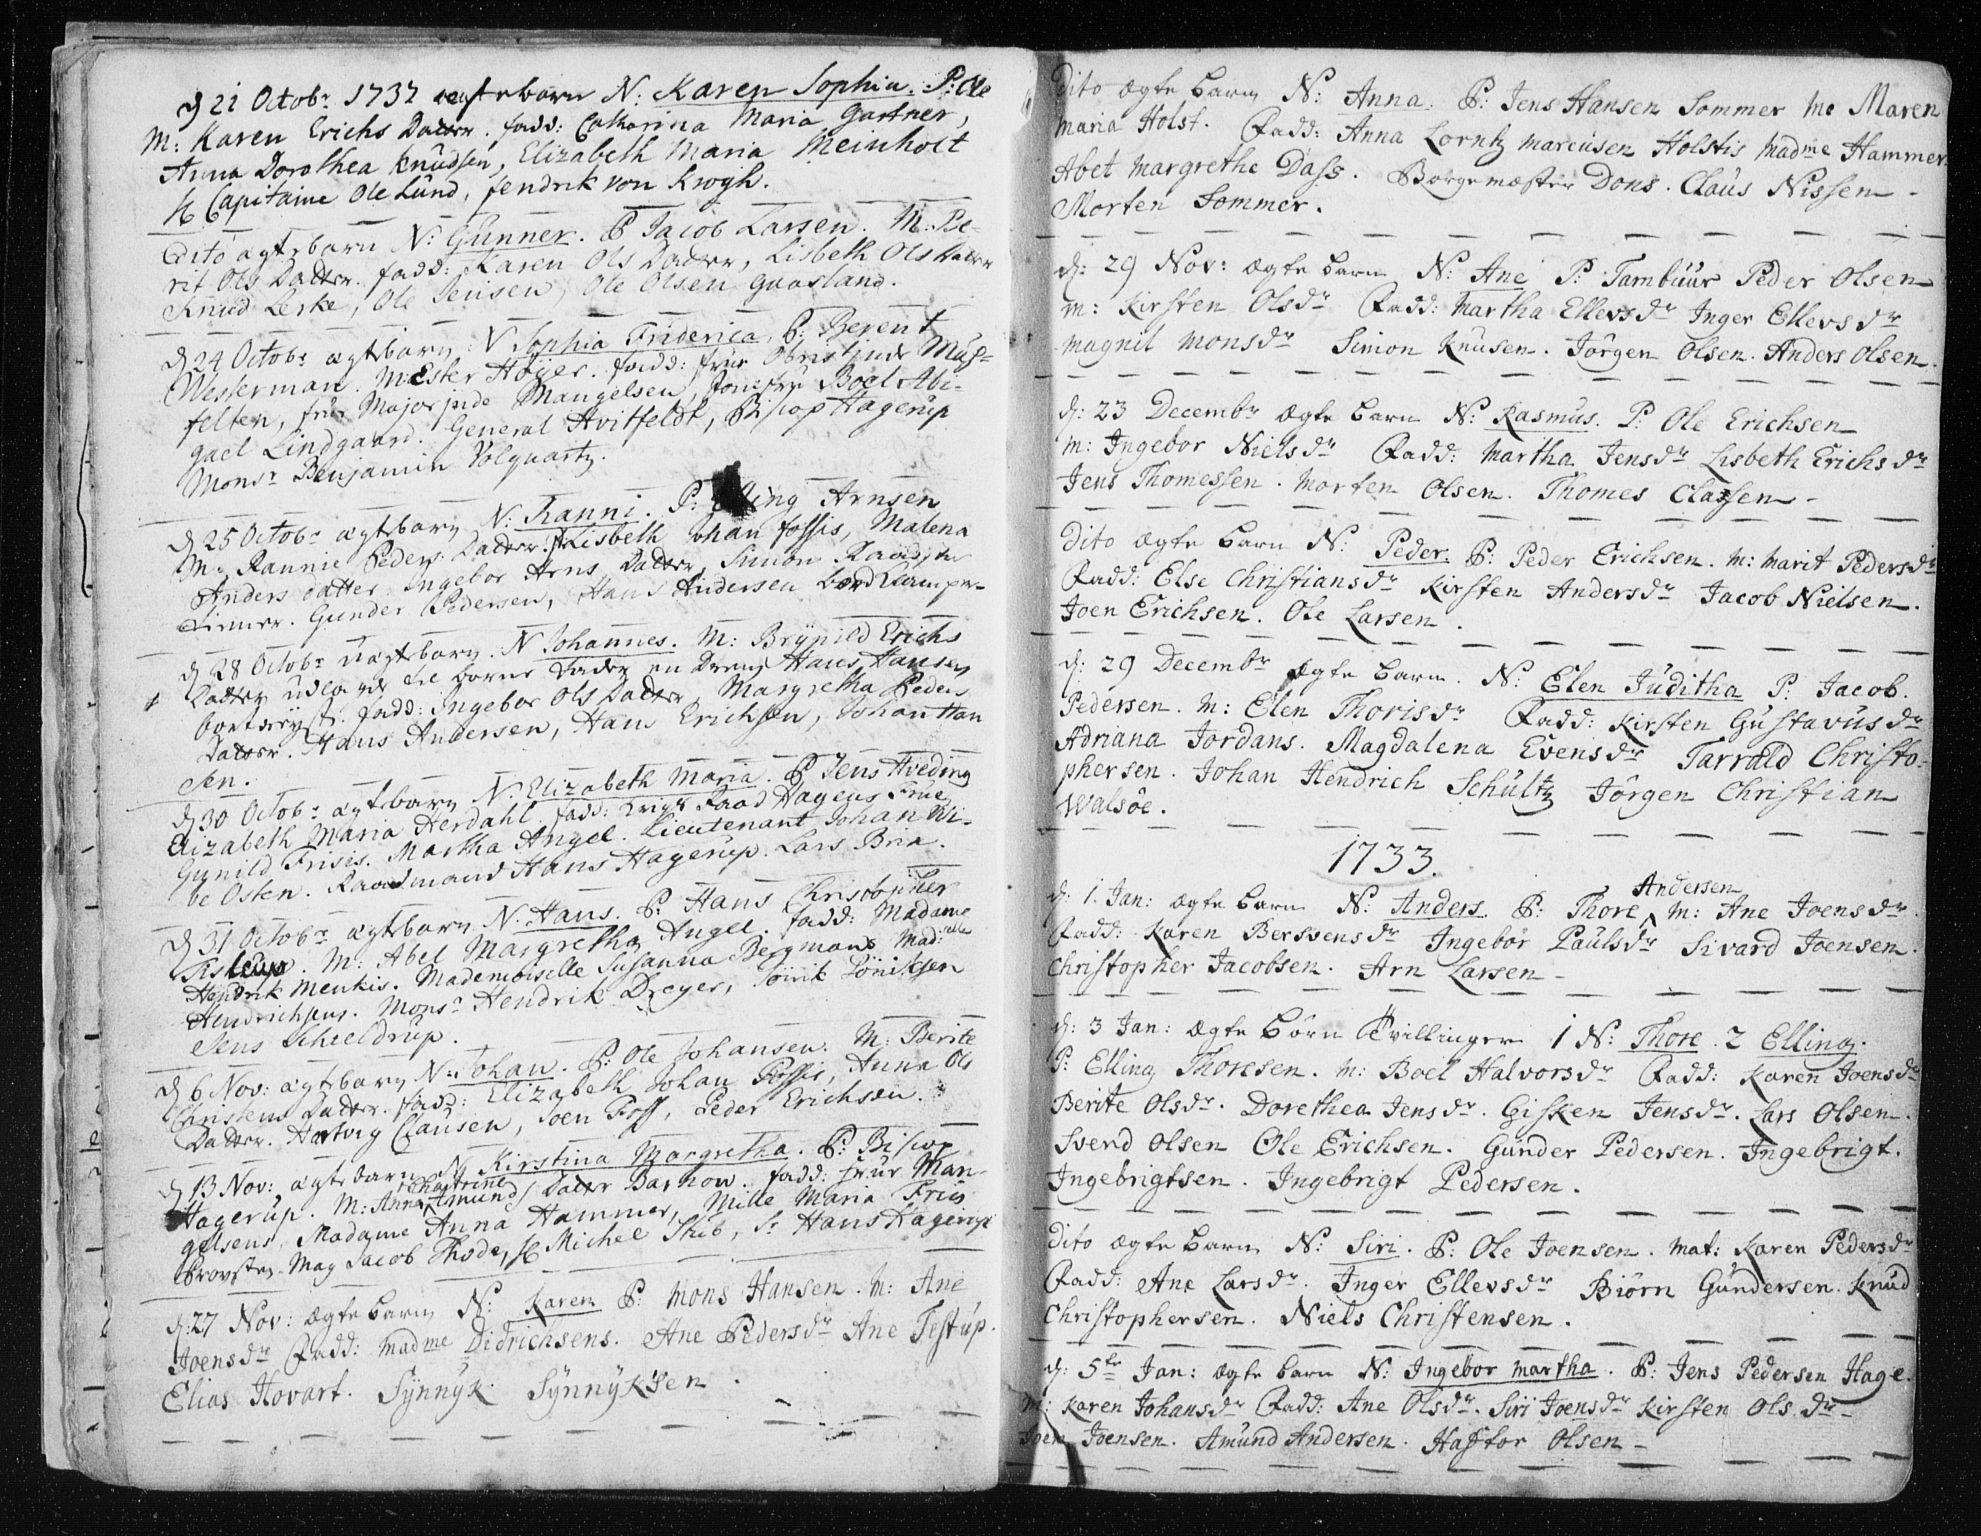 d 21 Octobr 1732 ægtebarn N: Karen Sophia. P: Ole
M: Karen Erichs Datter. fadd: Catharina Maria Gartner,
Anna Dorothea Knudsen, Elizabeth Maria Meinholt
Capitaine Ole Lund, fendrik von Krogh.
Dito ægtebarn N: Gunner. P Jacob Larsen. M: Be-
rit Ols Datter. fadd: Karen Ols Datter, Lisbeth Ols Datter
Knud Lerke, Ole Jensen, Ole Olsen Gaasland.
d 24 Octobr ægtebarn N Sophia Friderica, P: Berent
Westerman. M: Ester Høyer. fadd: frue Obristinde Mus-
felten, frue Majorinde Mangelsen, Jomfru Boel Abi-
gael Lindgaard. General Hvitfeldt, Biscop Hagerup
Monsr Benjamin Volquartz.
d 25 Octobr ægtebarn N: Ranni. P: Elling Arnsen
M: Rannie Peders Datter. Lisbeth Johan fossis, Malena
Anders datter Ingebor Arns Datter, Simon
Gunder Pedersen, Hans Andersen
d 28 Octobr uægtebarn. N Johannes. M: Brynild Erichs
Datter udlagde til barne fader en Dreng Hans Hansen
bortreyst. fadd: Ingebor Ols Datter, Margretha Peders
Datter. Hans Andersen, Hans Erichsen, Johan Han
sen.
d 30 Octobr ægtebarn N: Elizabeth Maria. P Jens Hveding
Elizabeth Maria Herdahl. fadd: Krigs Raad Hagens Frue,
Gunild Frisis. Martha Angel. Lieutenant Johan Wi-
be Osten. Raadmand Hans Hagerup. Lars Brix.
d 31 Octobr ægtebarn N. Hans. P: Hans Christopher
M: Abel Margretha Angel. fadd: Madame
Hendrik Meukis. Mademoiselle Susanna Bergmans Mad:
Hendrichsens. Monsr Hendrik Dreyer, Sönnik Sönniksen
Jens Scheldrup.
d 6 Nov: ægtebarn N: Johan. P: Ole Johansen. M: Berite
Christens Datter. fadd: Elizabeth Johan Fossis, Anna Ols
Datter. Hartvig Clausen, Joen Foss, Peder Erichsen.
d 13 Nov: ægtebarn N Kirstina Margretha. P: Biscop
Hagerup. M: Anna Chatrine Amunds Datter Barhow. fadd: frue Man-
gelsens, Madame Anna Hammer, Mille Maria Friis
Provsten Mag Jacob Thode, Michel Skib, Sr Hans Hagerup
d: 27 Nov: Ægte barn N: Karen P: Mons Hansen. M: Ane
Joensdr Fadd: Madme Didrichsens. Ane Pedersdr Ane Testup.
Elias Hovart. Synnyk Synnyksen.
Dito Ægte barn N: Anna. P: Jens Hansen Sommer Mo Maren
Maria Holst. Fadd: Anna Lorntz Marcusen Holstis Madme Hammer
Abet Margrethe Dass. Borgemester Dons. Claus Nissen -
Morten Sommer.
d: 29 Nov: Ægte barn N: Ane P: Tambuur Peder Olsen
M: Kirsten Olsdr Fadd: Martha Ellevsdr Inger Ellevsdr
Magnil Monsdr Simon Knusen. Jörgen Olsen. Anders Olsen.
d: 23 Decembr Ægte barn N: Rasmus. P: Ole Erichsen
M: Ingebor Nielsdr Fadd: Martha Jensdr Lisbeth Erichsdr
Jens Thomessen. Morten Olsen. Thomes Classen -
Dito Ægte barn N: Peder P: Peder Erichsen. M: Marit Pedersdr
Fadd: Else Christiansdr Kirsten Andersdr Jacob Nielsen.
Joen Erichsen. Ole Larsen.
d: 29 Decembr Ægte barn. N: Elen Juditha P: Jacob.
Pedersen. M: Elen Thorisdr Fadd: Kirsten Gustavusdr
Adriana Jordans. Magdalena Evensdr Tarrald Christo-
phersen. Johan Hendrich Schultz Jörgen Christian
Walsöe.
1733.
d: 1. Jan: Ægte barn N: Anders P: Thore Andersen M: Ane Joensdr
Fadd: Karen Berssensdr Ingebor Paulsdr Sivard Joensen.
Christopher Jacobsen. Arn Larsen -
d: 3 Jan: Ægte börn Tvillinger 1 N: Thore. 2 Elling.
P: Elling Thoresen. M: Boel Halvorsdr Fadd: Karen Joensdr
Berite Olsdr. Dorethea Jensdr. Gisken Jensdr. Lars Olsen.
Svend Olsen Ole Erichsen. Gunder Pedersen. Ingebrigt.
Ingebrigtsen. Ingebrigt Pedersen.
Dito Ægte barn N: Siri. P: Ole Joensen. Mat: Karen Pedersdr
Fadd: Ane Larsdr. Inger Ellevsdr Biörn Gundersen. Knud
Christophersen. Niels Christensen.
d: 5te Jan: Ægte barn N: Ingebor Martha. P: Jens Pedersen Hage.
M: Karen Johansdr Fadd: Ane Olsdr. Siri Joensdr Kirsten Olsdr -
Joen Joensen. Amund Andersen. Haftor Olsen -